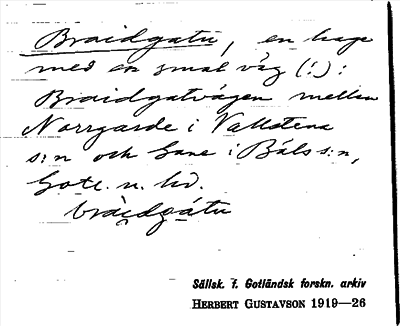 Braidgatu, en hage
med en smal väg (:):
Braidgatvägen mellan
Norrgarde i Vallstena
s:n och Gane i Bäls s:n,
Gotl. n. hd.
braidgátu
Sällsk. f. Gotländsk forskn. arkiv
HERBERT GUSTAVSON 1919—26